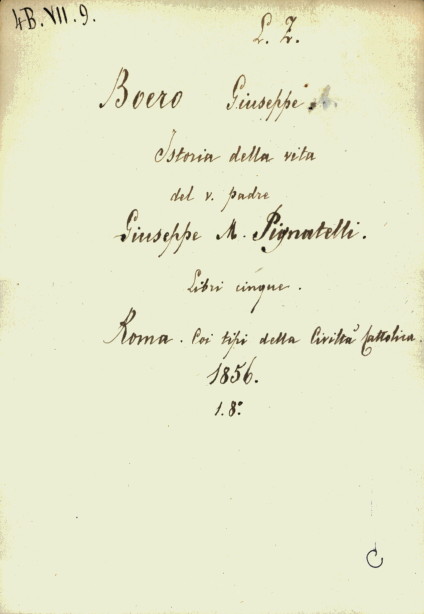 4B.VII.9.
L. Z.
Boero Giuseppe.
Istoria della vita
del v. padre
Giuseppe M. Pignatelli.
Libri cinque.
Roma. Coi tipi della Civiltà Cattolica.
1856.
1.8º
C